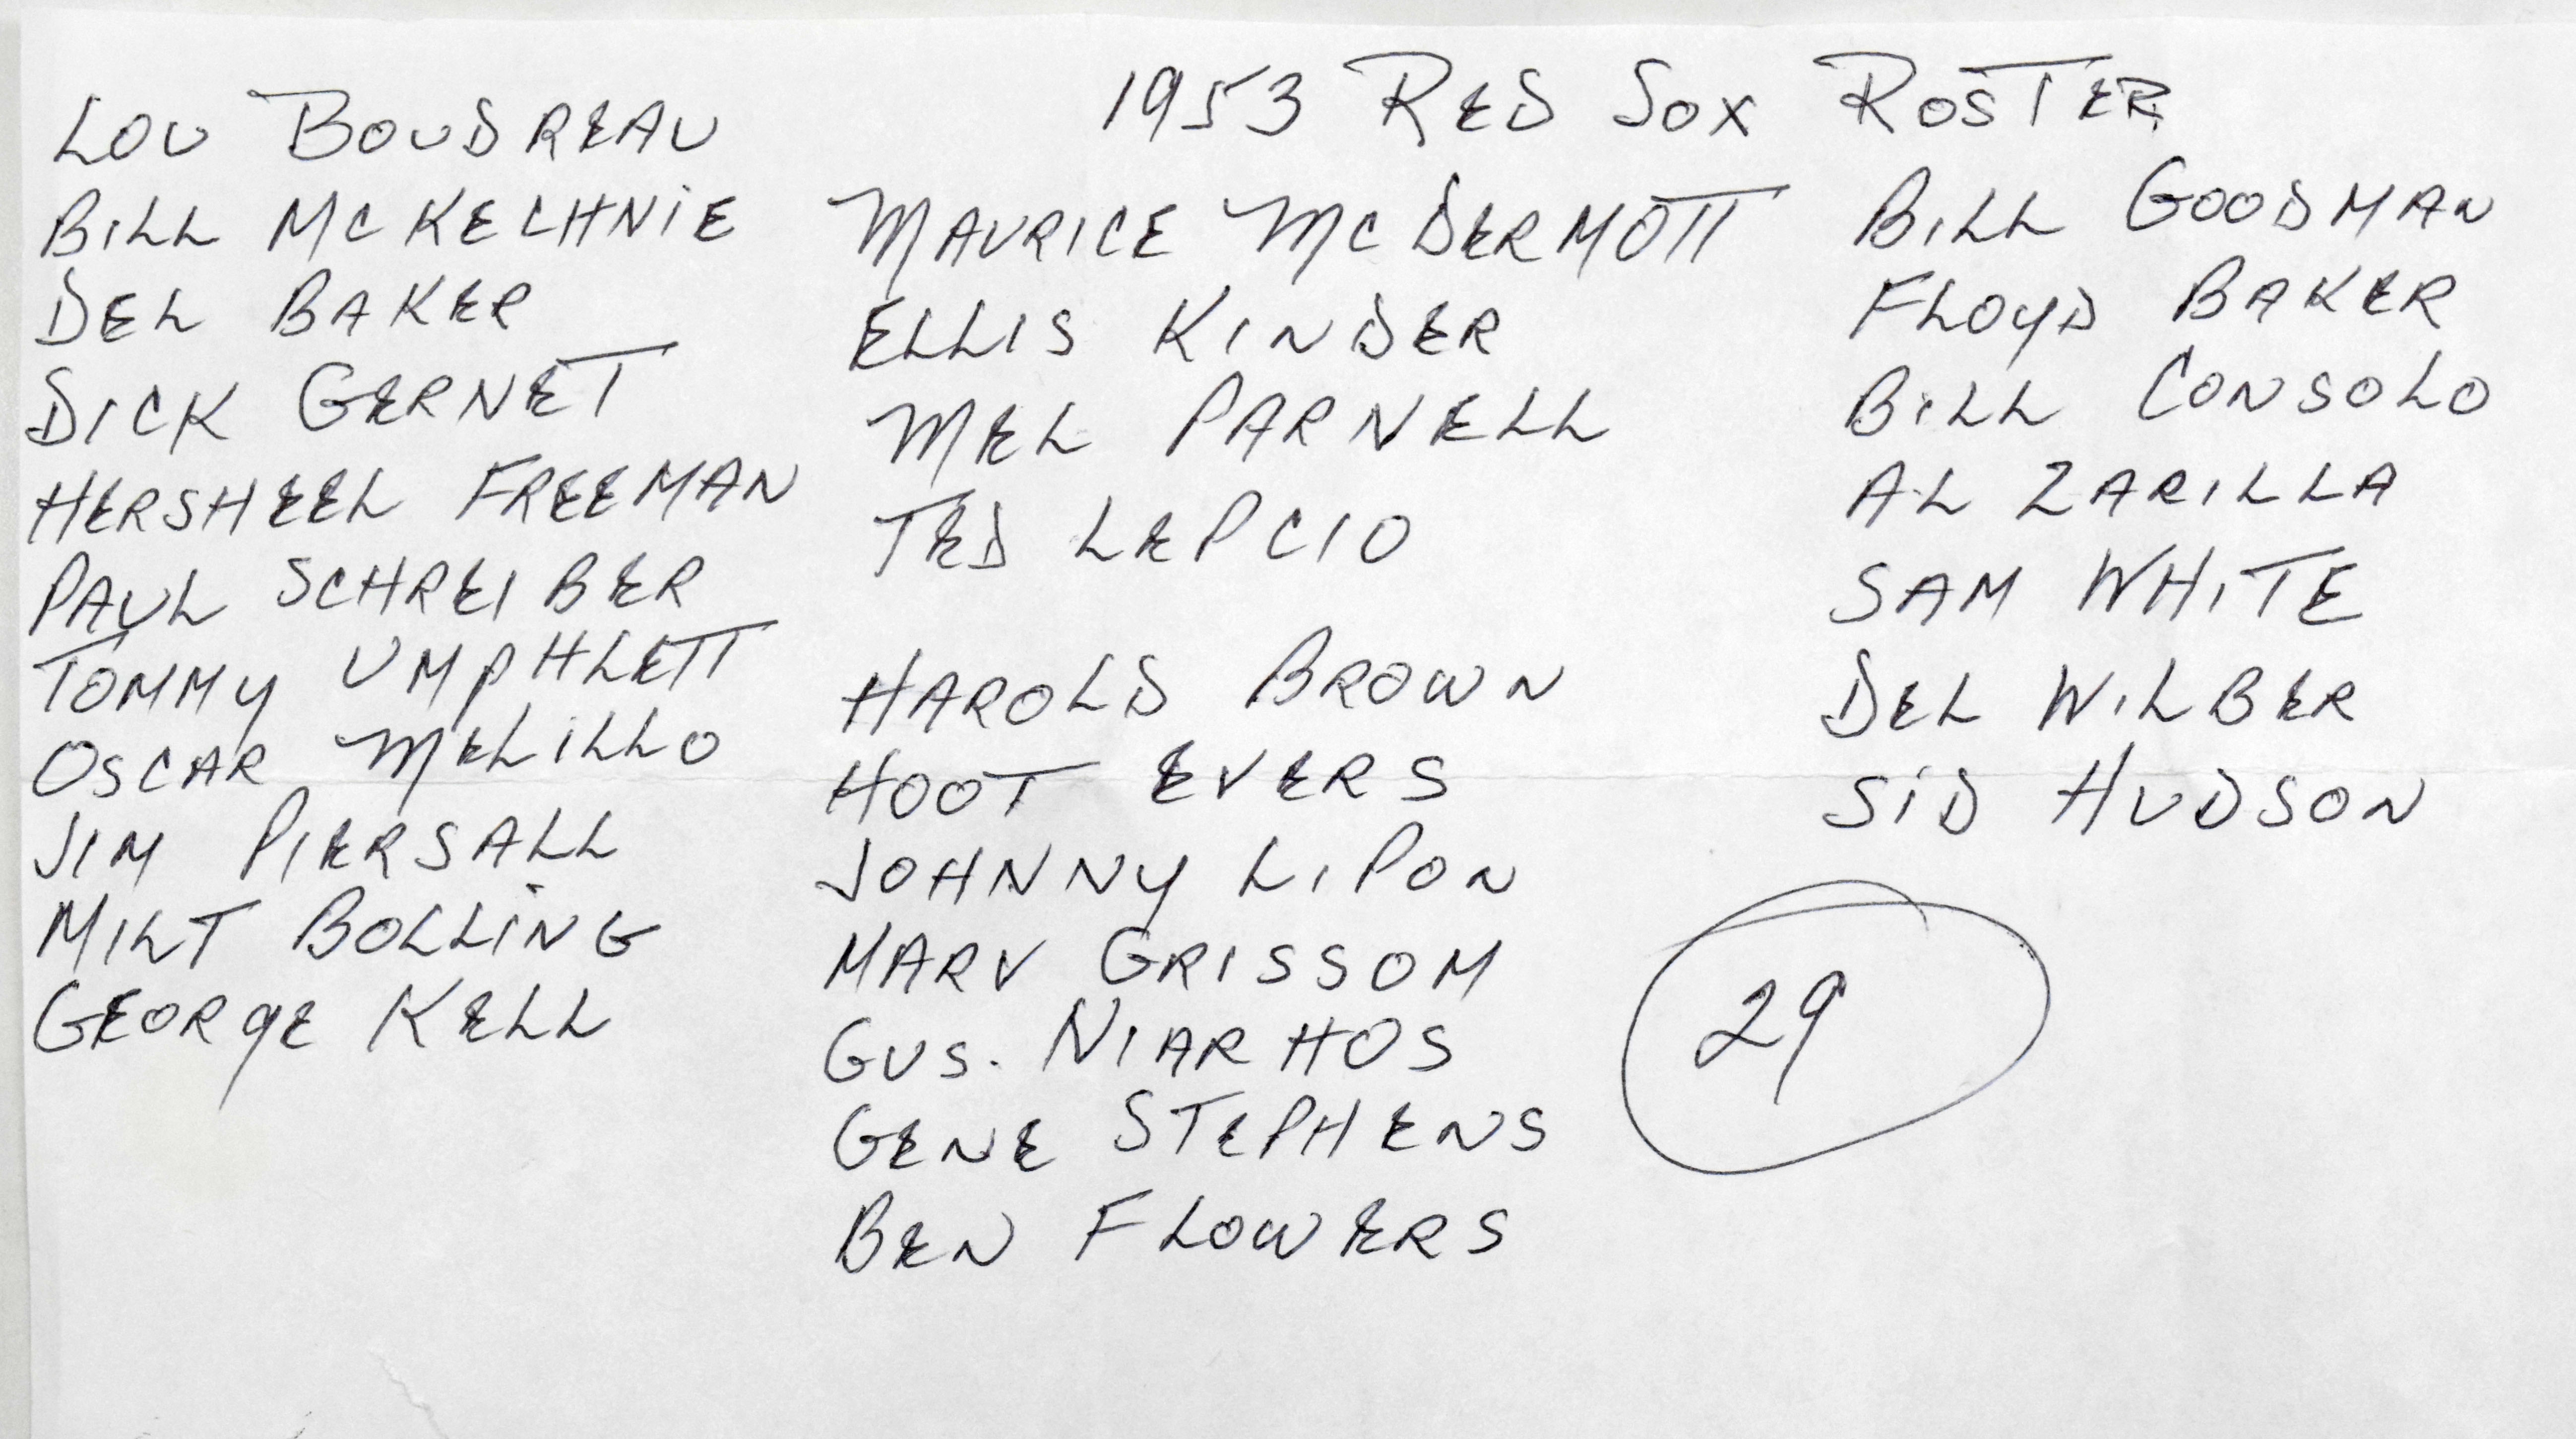 1953 RED SOX ROSTER
LOU BOUDREAU
BILL MCKECHNIE
DEL BAKER
DICK GERNET
HERSHEEL FREEMAN
PAUL SCHREIBER
TOMMY UMPHLETT
OSCAR MELILLO
JIM PIERSALL
MILT BOLLING
GEORGE KELL
MAURICE MCDERMOTT
ELLIS KINDER
MEL PARNELL
TED LEPCIO
HAROLD BROWN
HOOT EVERS
JOHNNY LIPON
MARV GRISSOM
GUS. NIARHOS
GENE STEPHENS
BEN FLOWERS
BILL GOODMAN
FLOYD BAKER
BILL CONSOLO
AL ZARILLA
SAM WHITE
DEL WILBER
SID HUDSON
29